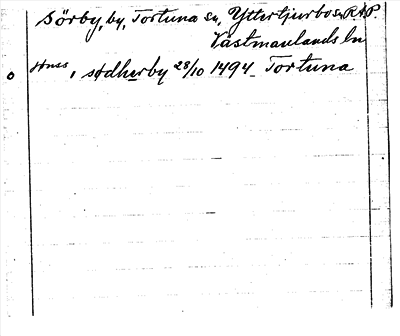 Sörby, by, Tortuna sn, Yttertjurbo hd RAP.
Västmanlands ln
i sødherby 28/10 1494 Tortuna